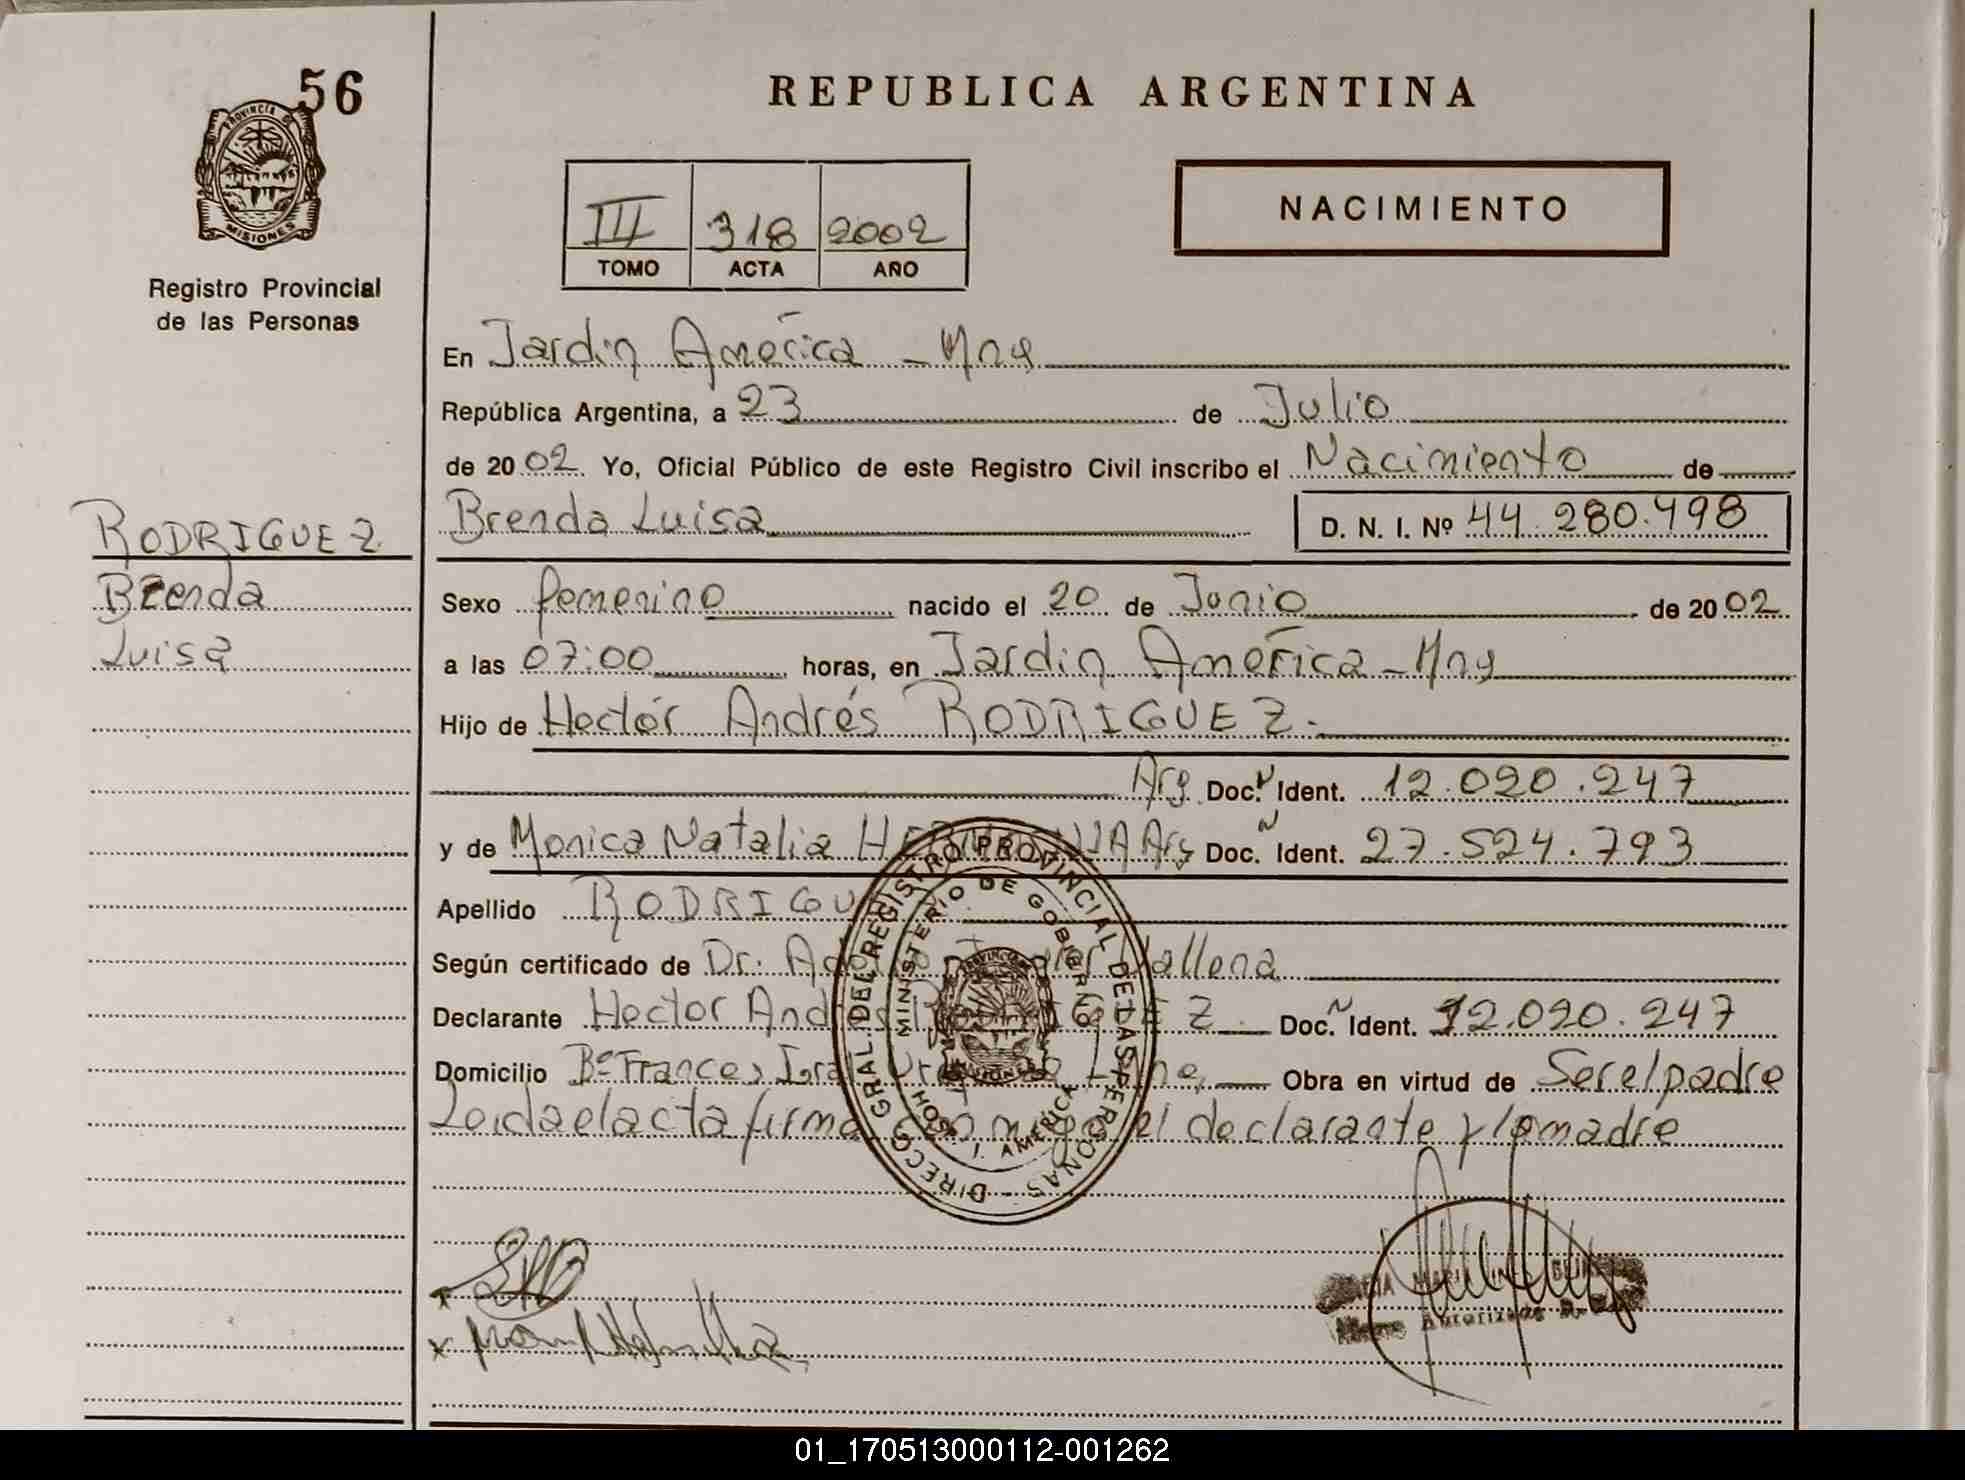 56
PROVINCIA DE
MISIONES
Registro Provincial
de las Personas
RODRIGUEZ
Brenda
Luisa
REPUBLICA ARGENTINA
III 318 2002
TOMO ACTA AÑO
NACIMIENTO
En Jardin América - Mnes
República Argentina, a 23 de Julio
de 2002. Yo, Oficial Público de este Registro Civil inscribo el Nacimiento de
Brenda Luisa D. N. I. Nº 44.280.498
Sexo femenino nacido el 20 de Junio de 2002
a las 07:00 horas, en Jardin América - Mnes
Hijo de Hectór Andrés RODRIGUEZ.
Arg. Doc. Ident. 12.020.247
y de Monica Natalia Arg Doc. Ident. 27.524.793
Apellido
Según certificado de Dr. Wallena
Declarante Hector Doc. Ident. 12.020.247
Domicilio Bº Frances, Obra en virtud de Ser el padre
Leida el acta firma el declarante y la madre
DIRECC. GRAL. DEL REGISTRO PROVINCIAL DE LAS PERSONAS
MINISTERIO DE GOBIERNO
J. AMERICA
01_170513000112-001262